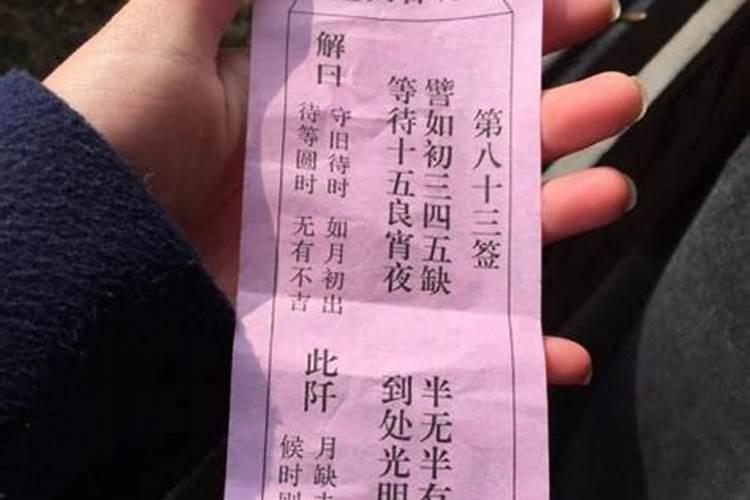 第八十三签
譬如初三四五缺 半无半有
等待十五良宵夜 到处光明
解曰
守旧待时 如月初出
待等圓时 无有不吉
此阡
月缺
候时